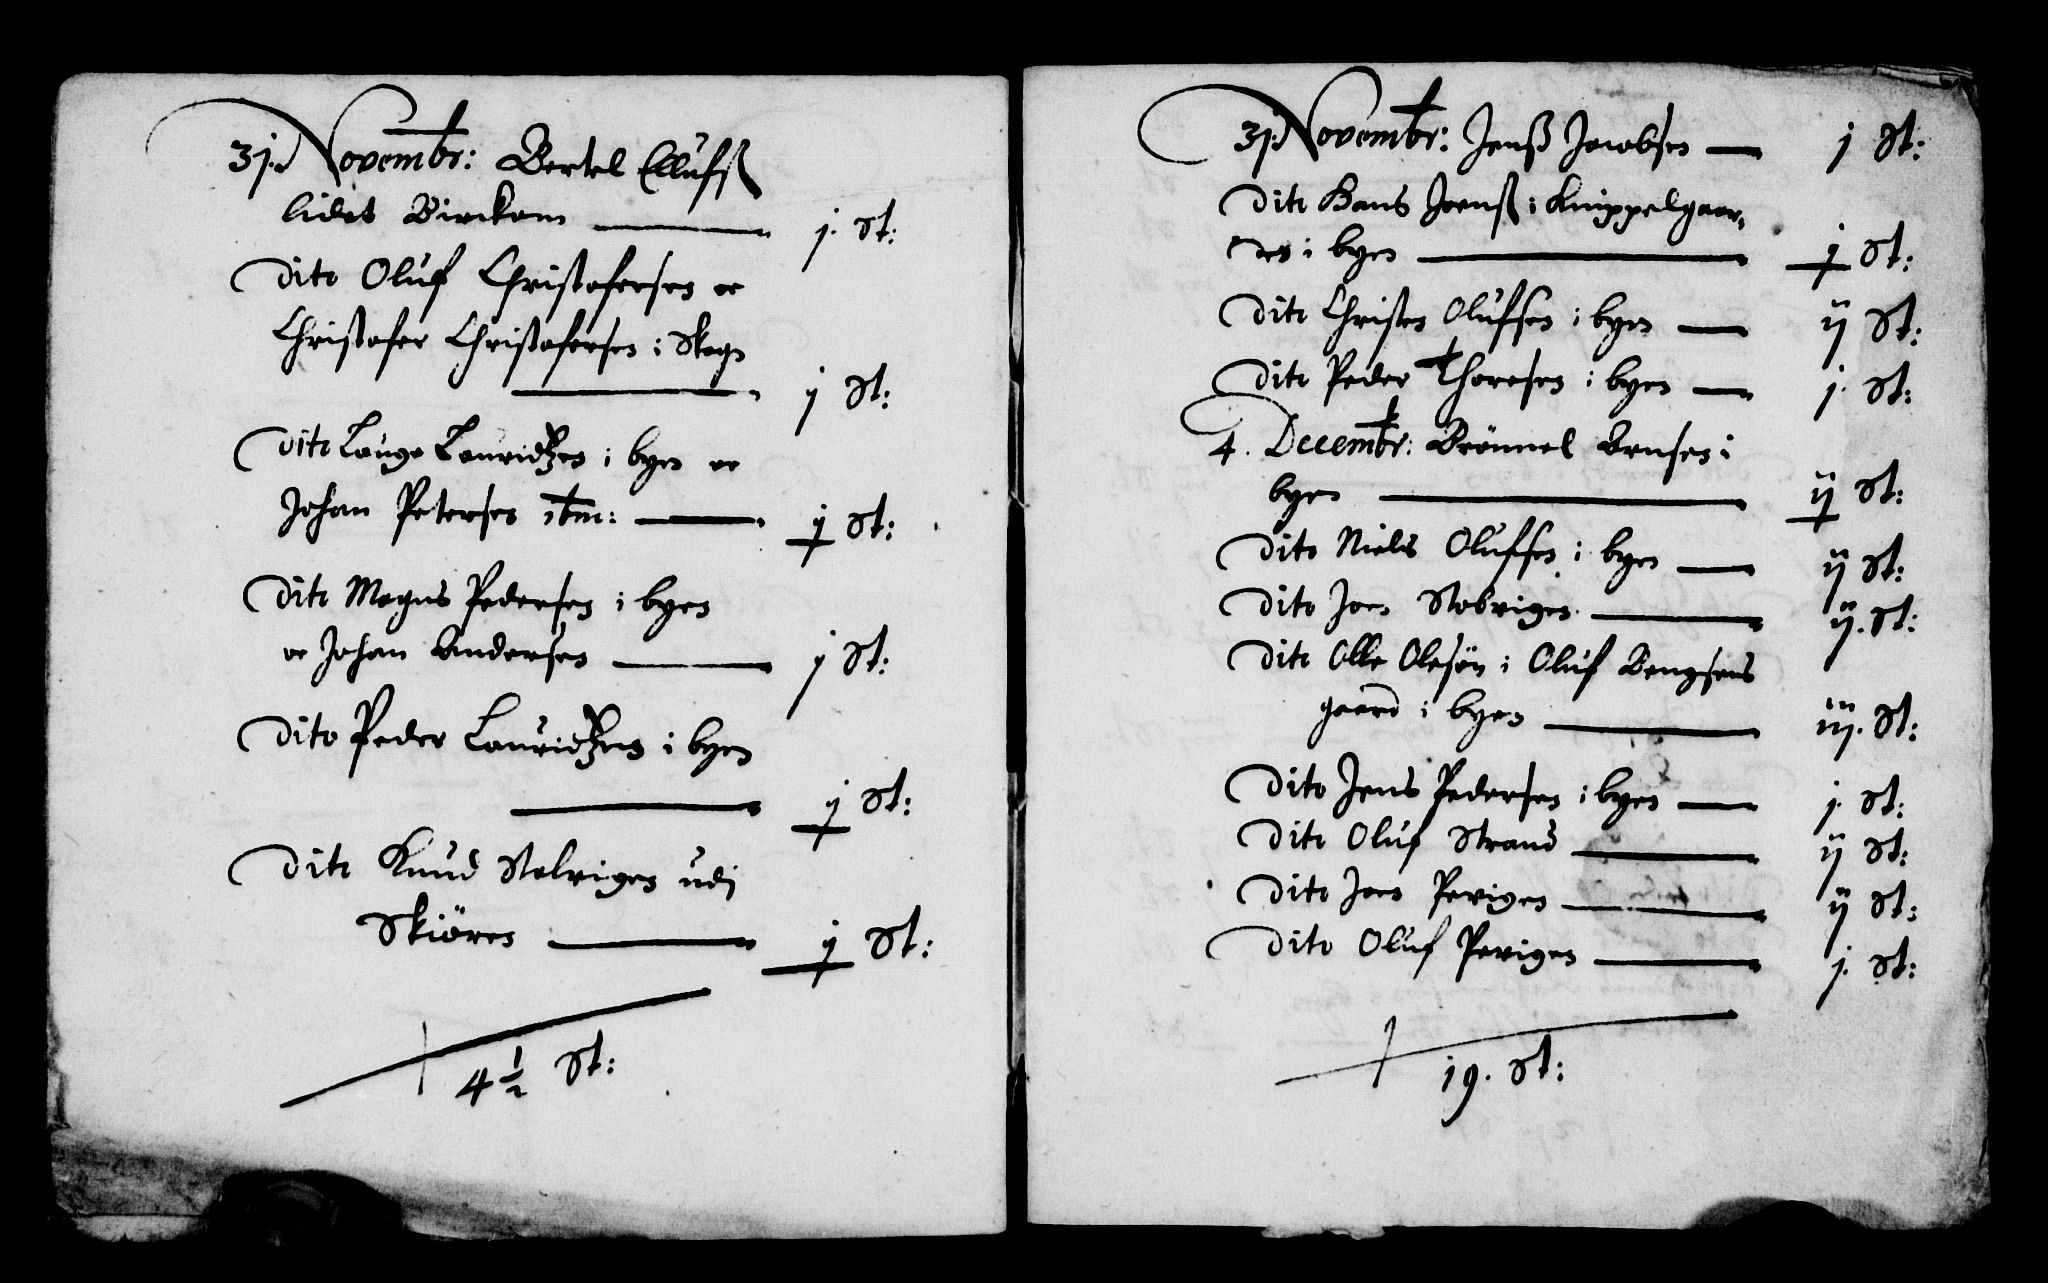 31. Novembr: Bertel Ellufß
lidet Birckom — j. St:
Dito Oluf Christofersen oc
Christofer Christofersen i Skogn
— j St:
Dito Lauge Lauridtzen i byen oc
Johan Petersen ibm: — j St:
Dito Mogns Pedersen i byen
oc Johan Andersen — j St:
Dito Peder Lauridtzens i byen
— j St:
Dito Knud Stolrigen udj
Skiören — j St:
4 1/2 St:
31. Novembr: Jenß Jacobsen — j St:
Dito Hans Joenß i Knippelgaar-
den i byen — j St:
Dito Christen Olufsen i byen — ij St:
Dito Peder Thoresen i byen — j. St:
4. Decembr: Brönnel Arnsen i
byen — ij St:
Dito Niels Oluffsen i byen — ij St:
Dito Joen Stobrigen — ij. St:
Dito Olle Olesön i Oluf Bengsens
gaard i byen — iij. St:
Dito Jens Pedersen i byen — j. St:
Dito Oluf Strand — ij St:
Dito Joen Perigen — ij St:
Dito Oluf Perigen — j. St:
19. St: